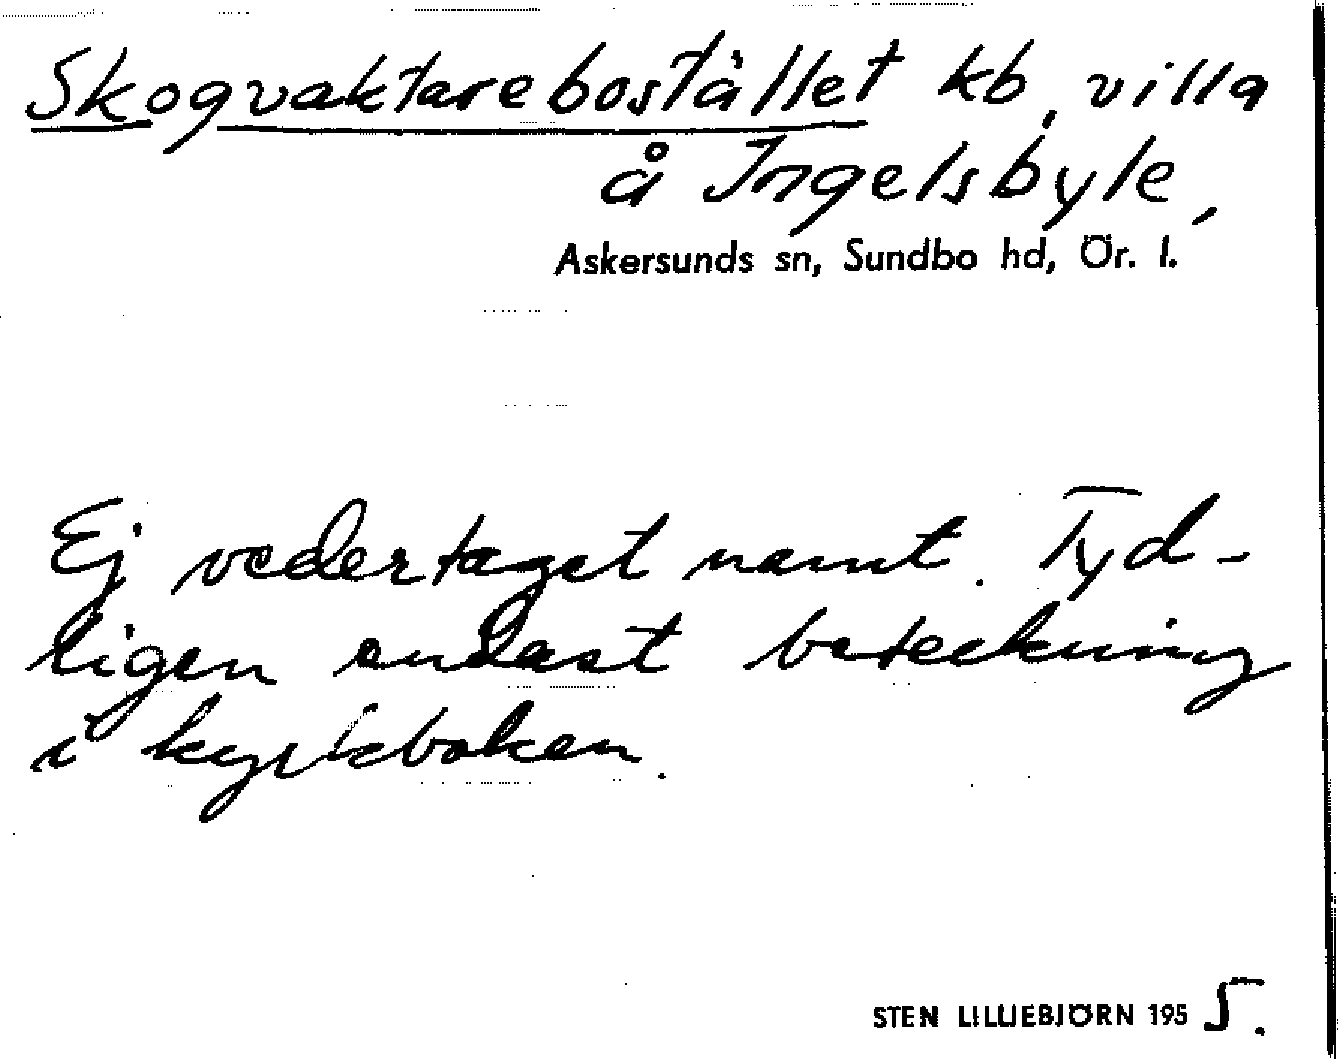 Skogvaktarebostället kb, villa
å Ingelsbyle,
Askersunds sn, Sundbo hd, Ör. l.
Ej vedertaget namnt. Tyd-
ligen endast beteckning
i kyrkboken.
STEN LILLIEBJÖRN 195 5.